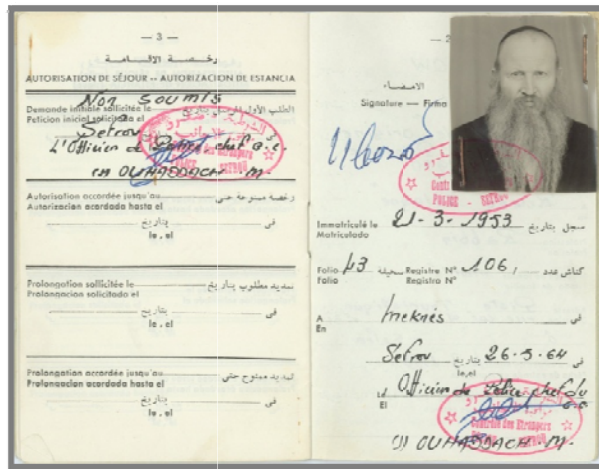 — 3 —
رخصة الإقامة
AUTORISATION DE SÉJOUR -- AUTORIZACION DE ESTANCIA
Non soumis
Demande initiale sollicitée le
Peticion inicial solicitada el
Sefrou
L'Officier de Police chef a.c.
(1) OUHASSACH - M -
Autorisation accordée jusqu'au
رخصة ممنوحة حتى
Autorizacion acordada hasta el
في بتاريخ
le . el
Prolongation sollicitée le
تمديد مطلوب بتاريخ
Prolongacion solicitada el
في بتاريخ
le . el
Prolongation accordée jusqu'au
تمديد ممنوح حتى
Prolongacion acordada hasta el
في بتاريخ
le . el
— 2
الامضاء
Signature — Firma
POLICE - SEFROU
Immatriculé le 21 - 3 - 1953 سجل بتاريخ
Matriculado
Folio 43 صحيفة Registre N° 106 كناش عدد
Folio Registro N°
A Meknès في
En
Sefrou بتاريخ 26-5-64 في
le.el
Le Officier de Police chef du
El
Contrôle des Etrangers
(1) OUHASSACH - M -